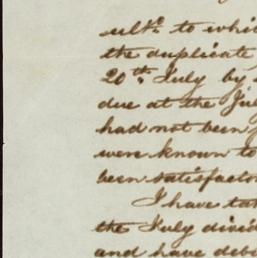 ult.o to whi
the duplicate
20th July by
due at the Ju
had not been
were known to
been satisfactor
I have ta
the July divid
and have deb